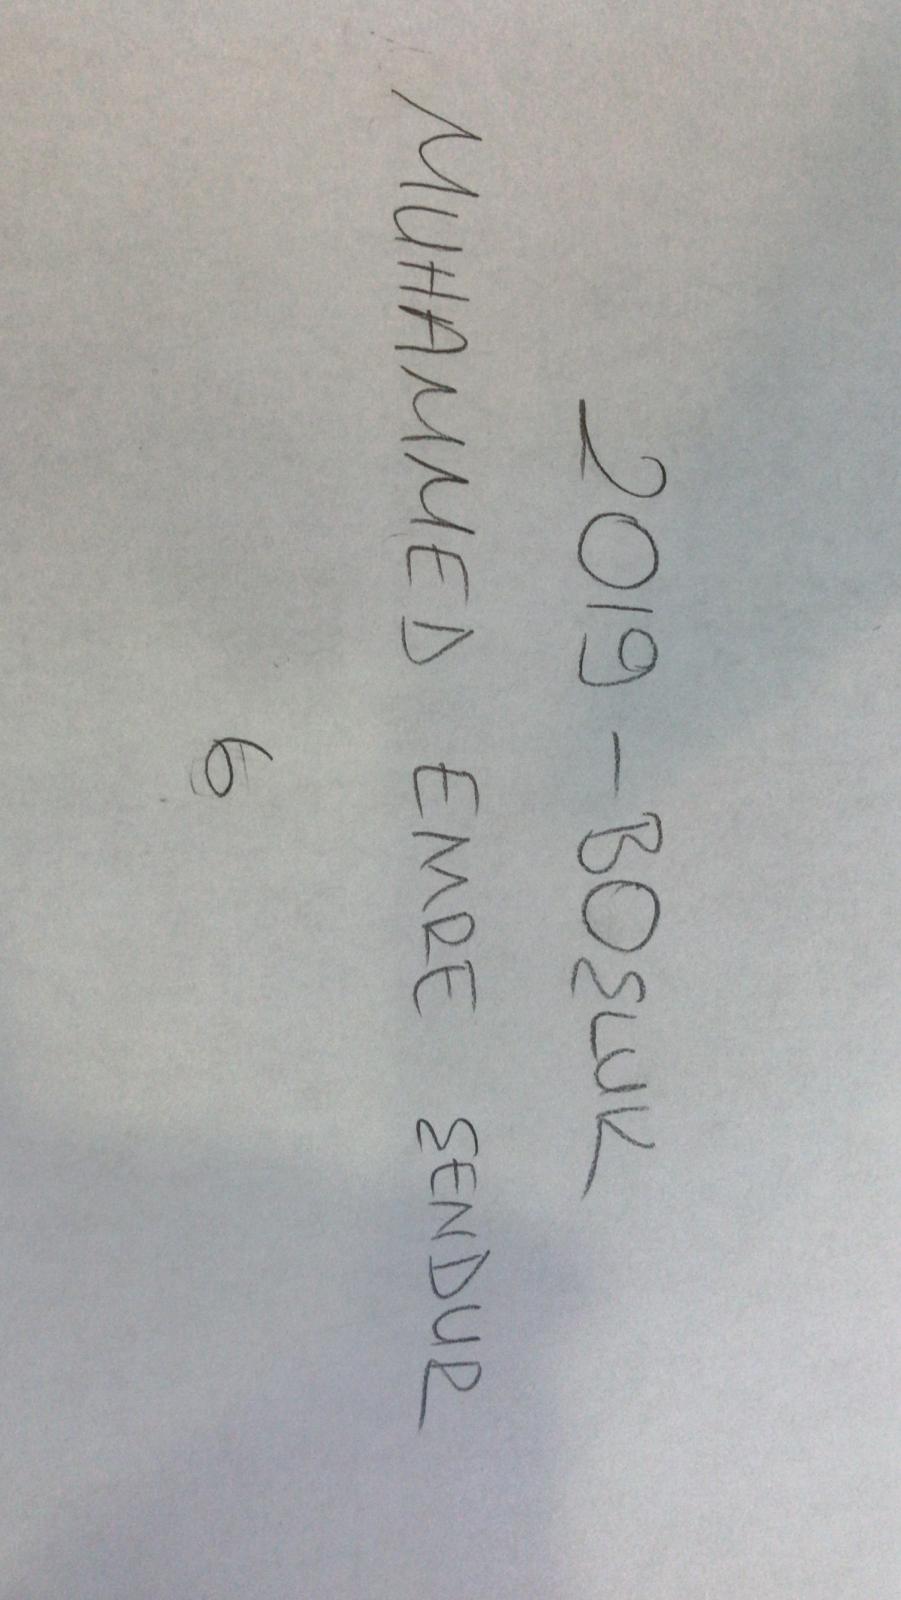 2019 - BOŞLUK
MUHAMMED EMRE ŞENDUR
6